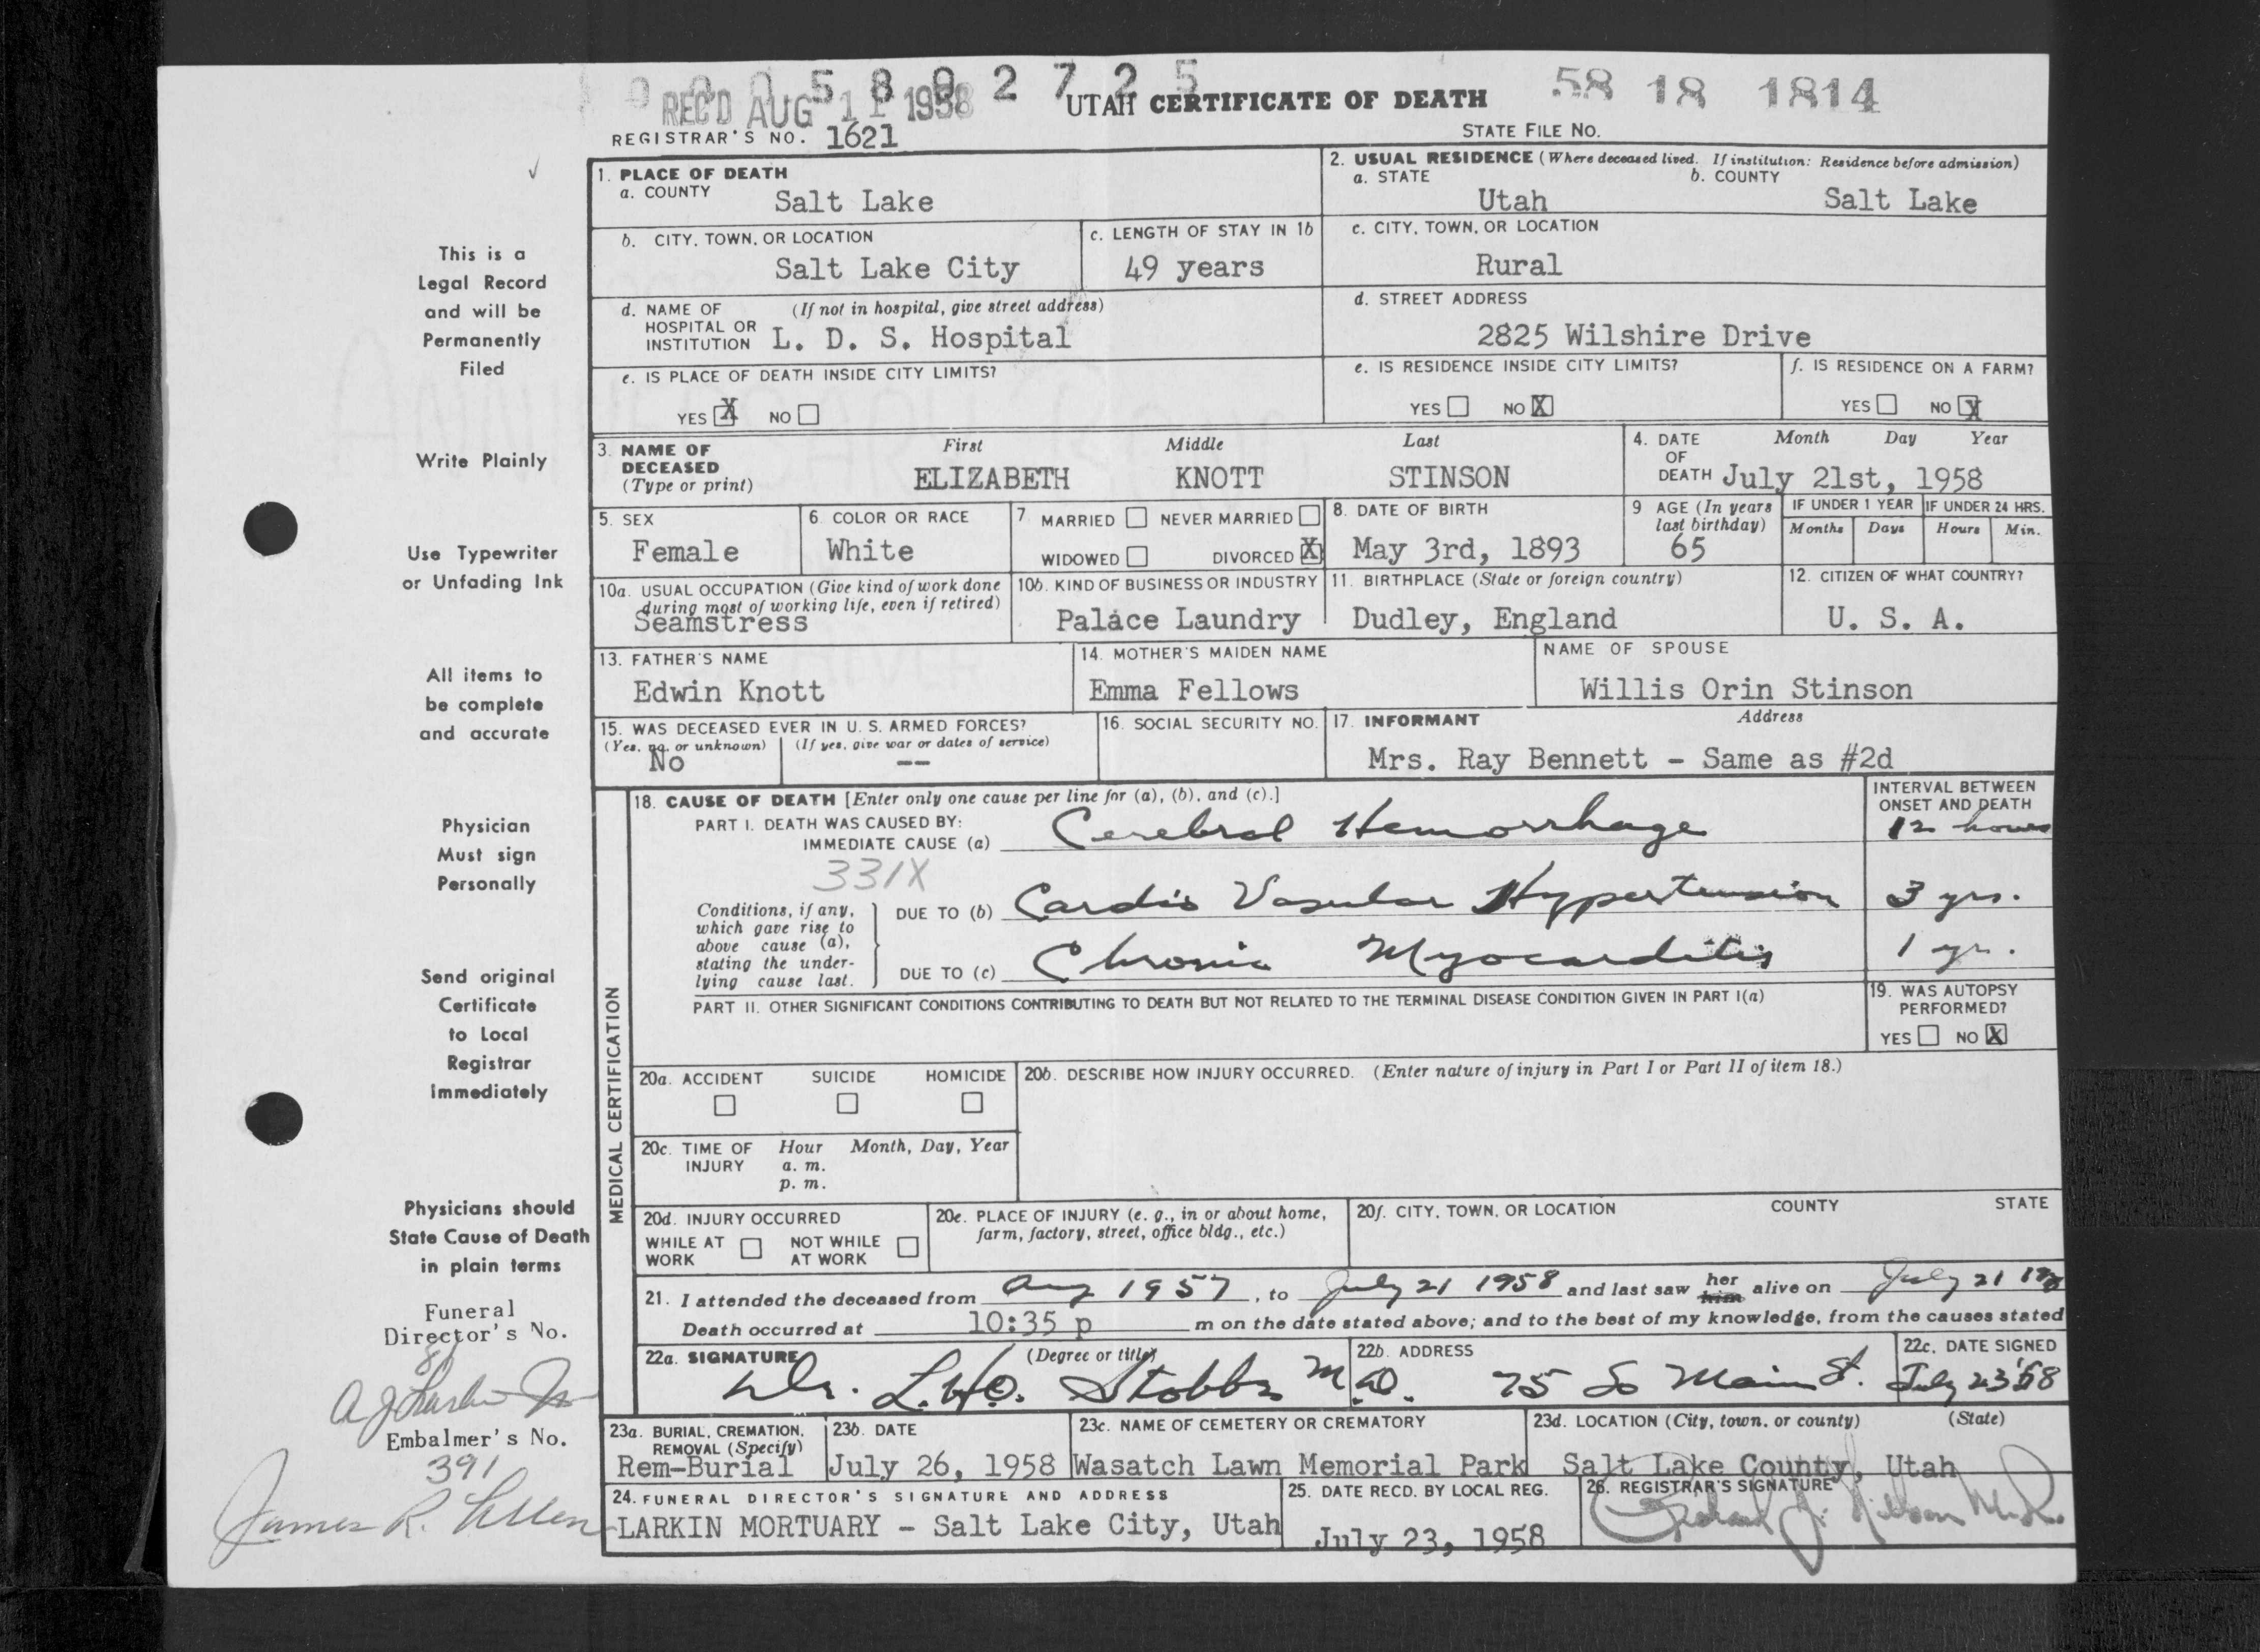 0 0 0 5 8 0 2 7 2 5
REC'D AUG 11 1958
UTAH CERTIFICATE OF DEATH
58 18 1814
REGISTRAR'S NO. 1621
STATE FILE NO.
1. PLACE OF DEATH
a. COUNTY
Salt Lake
2. USUAL RESIDENCE (Where deceased lived. If institution: Residence before admission)
a. STATE b. COUNTY
Utah Salt Lake
b. CITY, TOWN, OR LOCATION
Salt Lake City
c. LENGTH OF STAY IN 1b
49 years
c. CITY, TOWN, OR LOCATION
Rural
d. NAME OF (If not in hospital, give street address)
HOSPITAL OR
INSTITUTION L. D. S. Hospital
d. STREET ADDRESS
2825 Wilshire Drive
e. IS PLACE OF DEATH INSIDE CITY LIMITS?
YES X NO
e. IS RESIDENCE INSIDE CITY LIMITS?
YES NO X
f. IS RESIDENCE ON A FARM?
YES NO X
3. NAME OF
DECEASED
(Type or print)
First Middle Last
ELIZABETH KNOTT STINSON
4. DATE Month Day Year
OF
DEATH July 21st, 1958
5. SEX
Female
6. COLOR OR RACE
White
7 MARRIED NEVER MARRIED
WIDOWED DIVORCED X
8. DATE OF BIRTH
May 3rd, 1893
9 AGE (In years
last birthday)
65
IF UNDER 1 YEAR
Months Days
IF UNDER 24 HRS.
Hours Min.
10a. USUAL OCCUPATION (Give kind of work done
during most of working life, even if retired)
Seamstress
10b. KIND OF BUSINESS OR INDUSTRY
Palace Laundry
11. BIRTHPLACE (State or foreign country)
Dudley, England
12. CITIZEN OF WHAT COUNTRY?
U. S. A.
13. FATHER'S NAME
Edwin Knott
14. MOTHER'S MAIDEN NAME
Emma Fellows
NAME OF SPOUSE
Willis Orin Stinson
15. WAS DECEASED EVER IN U. S. ARMED FORCES?
(Yes, no, or unknown) (If yes, give war or dates of service)
No --
16. SOCIAL SECURITY NO.
17. INFORMANT Address
Mrs. Ray Bennett - Same as #2d
MEDICAL CERTIFICATION
18. CAUSE OF DEATH [Enter only one cause per line for (a), (b), and (c).]
INTERVAL BETWEEN
ONSET AND DEATH
PART I. DEATH WAS CAUSED BY:
IMMEDIATE CAUSE (a) Cerebral Hemorrhage 12 hours
331X
Conditions, if any,
which gave rise to
above cause (a),
stating the under-
lying cause last.
DUE TO (b) Cardio Vascular Hypertension 3 yrs.
DUE TO (c) Chronic Myocarditis 1 yr.
PART II. OTHER SIGNIFICANT CONDITIONS CONTRIBUTING TO DEATH BUT NOT RELATED TO THE TERMINAL DISEASE CONDITION GIVEN IN PART I(a)
19. WAS AUTOPSY
PERFORMED?
YES NO X
20a. ACCIDENT SUICIDE HOMICIDE
20b. DESCRIBE HOW INJURY OCCURRED. (Enter nature of injury in Part I or Part II of item 18.)
20c. TIME OF Hour Month, Day, Year
INJURY a. m.
p. m.
20d. INJURY OCCURRED
WHILE AT NOT WHILE
WORK AT WORK
20e. PLACE OF INJURY (e. g., in or about home,
farm, factory, street, office bldg., etc.)
20f. CITY, TOWN, OR LOCATION COUNTY STATE
21. I attended the deceased from Aug 1957, to July 21 1958 and last saw her him alive on July 21 1958
Death occurred at 10:35 p m on the date stated above; and to the best of my knowledge, from the causes stated
22a. SIGNATURE (Degree or title)
Dr. Stobbs M.D.
22b. ADDRESS
75 So Main St.
22c. DATE SIGNED
July 23 '58
23a. BURIAL, CREMATION,
REMOVAL (Specify)
Rem-Burial
23b. DATE
July 26, 1958
23c. NAME OF CEMETERY OR CREMATORY
Wasatch Lawn Memorial Park
23d. LOCATION (City, town, or county) (State)
Salt Lake County, Utah
24. FUNERAL DIRECTOR'S SIGNATURE AND ADDRESS
LARKIN MORTUARY - Salt Lake City, Utah
25. DATE RECD. BY LOCAL REG.
July 23, 1958
26. REGISTRAR'S SIGNATURE
This is a
Legal Record
and will be
Permanently
Filed
Write Plainly
Use Typewriter
or Unfading Ink
All items to
be complete
and accurate
Physician
Must sign
Personally
Send original
Certificate
to Local
Registrar
immediately
Physicians should
State Cause of Death
in plain terms
Funeral
Director's No.
Embalmer's No.
391
James R.